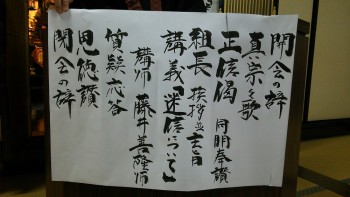 開会の辞
真宗宗歌
正信偈 同朋奉讃
組長 挨拶並主旨
講義「迷信について」
講師 藤井善隆師
質疑応答
恩徳讃
閉会の辞